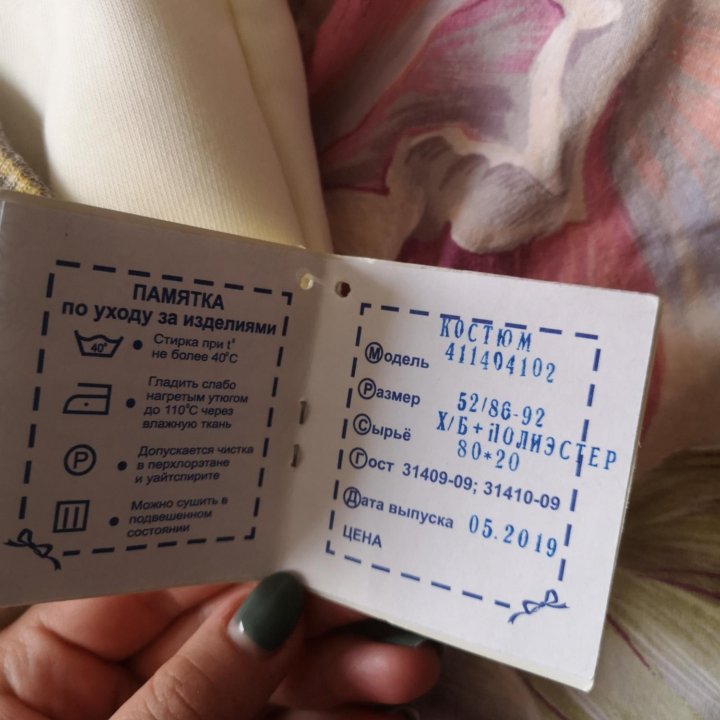 ПАМЯТКА
по уходу за изделиями
40°
Стирка при t°
не более 40°С
Гладить слабо
нагретым утюгом
до 110°С через
влажную ткань
P
Допускается чистка
в перхлорэтане
и уайтспирите
Можно сушить в
подвешенном
состоянии
КОСТЮМ
Модель 411404102
Размер 52/86-92
Сырьё Х/Б+ПОЛИЭСТЕР
80*20
Гост 31409-09; 31410-09
Дата выпуска 05.2019
ЦЕНА